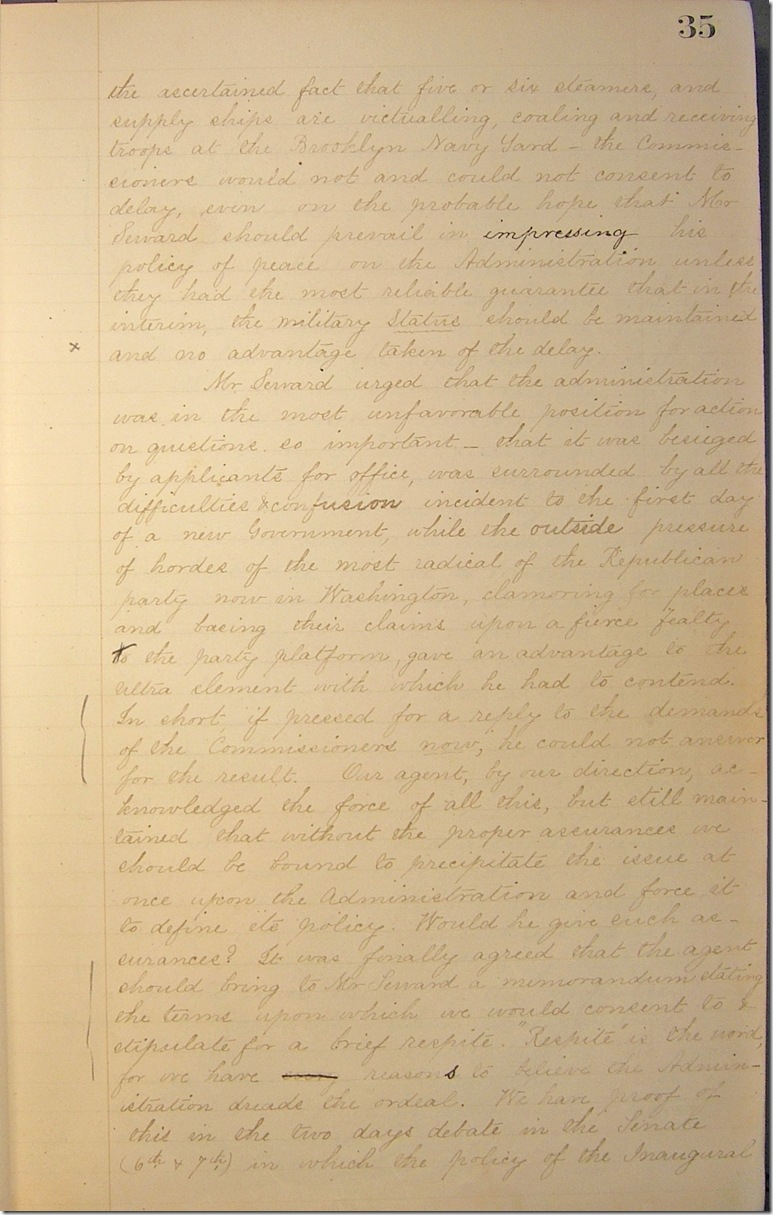 35
the ascertained fact that five or six steamers, and
supply ships are victualling, coaling and receiving
troops at the Brooklyn Navy Yard – the Commis-
sioners would not and could not consent to
delay, even on the probable hope that Mr
Seward should prevail in impressing his
policy of peace on the Administration unless
they had the most reliable guarantee that in the
interim, the military status should be maintained
x and no advantage taken of the delay.
Mr Seward urged that the administration
was in the most unfavorable position for action
on questions so important – that it was besieged
by applicants for office, was surrounded by all the
difficulties & confusion incident to the first day
of a new Government, while the outside pressure
of hordes of the most radical of the Republican
party now in Washington, clamoring for places
and basing their claims upon a fierce fealty
to the party platform, gave an advantage to the
ultra element with which he had to contend.
In short, if pressed for a reply to the demands
of the Commissioners now, he could not answer
for the result. Our agent, by our direction, ac-
knowledged the force of all this, but still main-
tained that without the proper assurances we
should be bound to precipitate the issue at
once upon the Administration and force it
to define its policy. Would he give such as-
surances? It was finally agreed that the agent
should bring to Mr Seward a memorandum stating
the terms upon which we would consent to &
stipulate for a brief respite. "Respite" is the word,
for we have reasons to believe the Admin-
istration dreads the ordeal. We have proof of
this in the two days debate in the Senate
(6th & 7th) in which the policy of the Inaugural